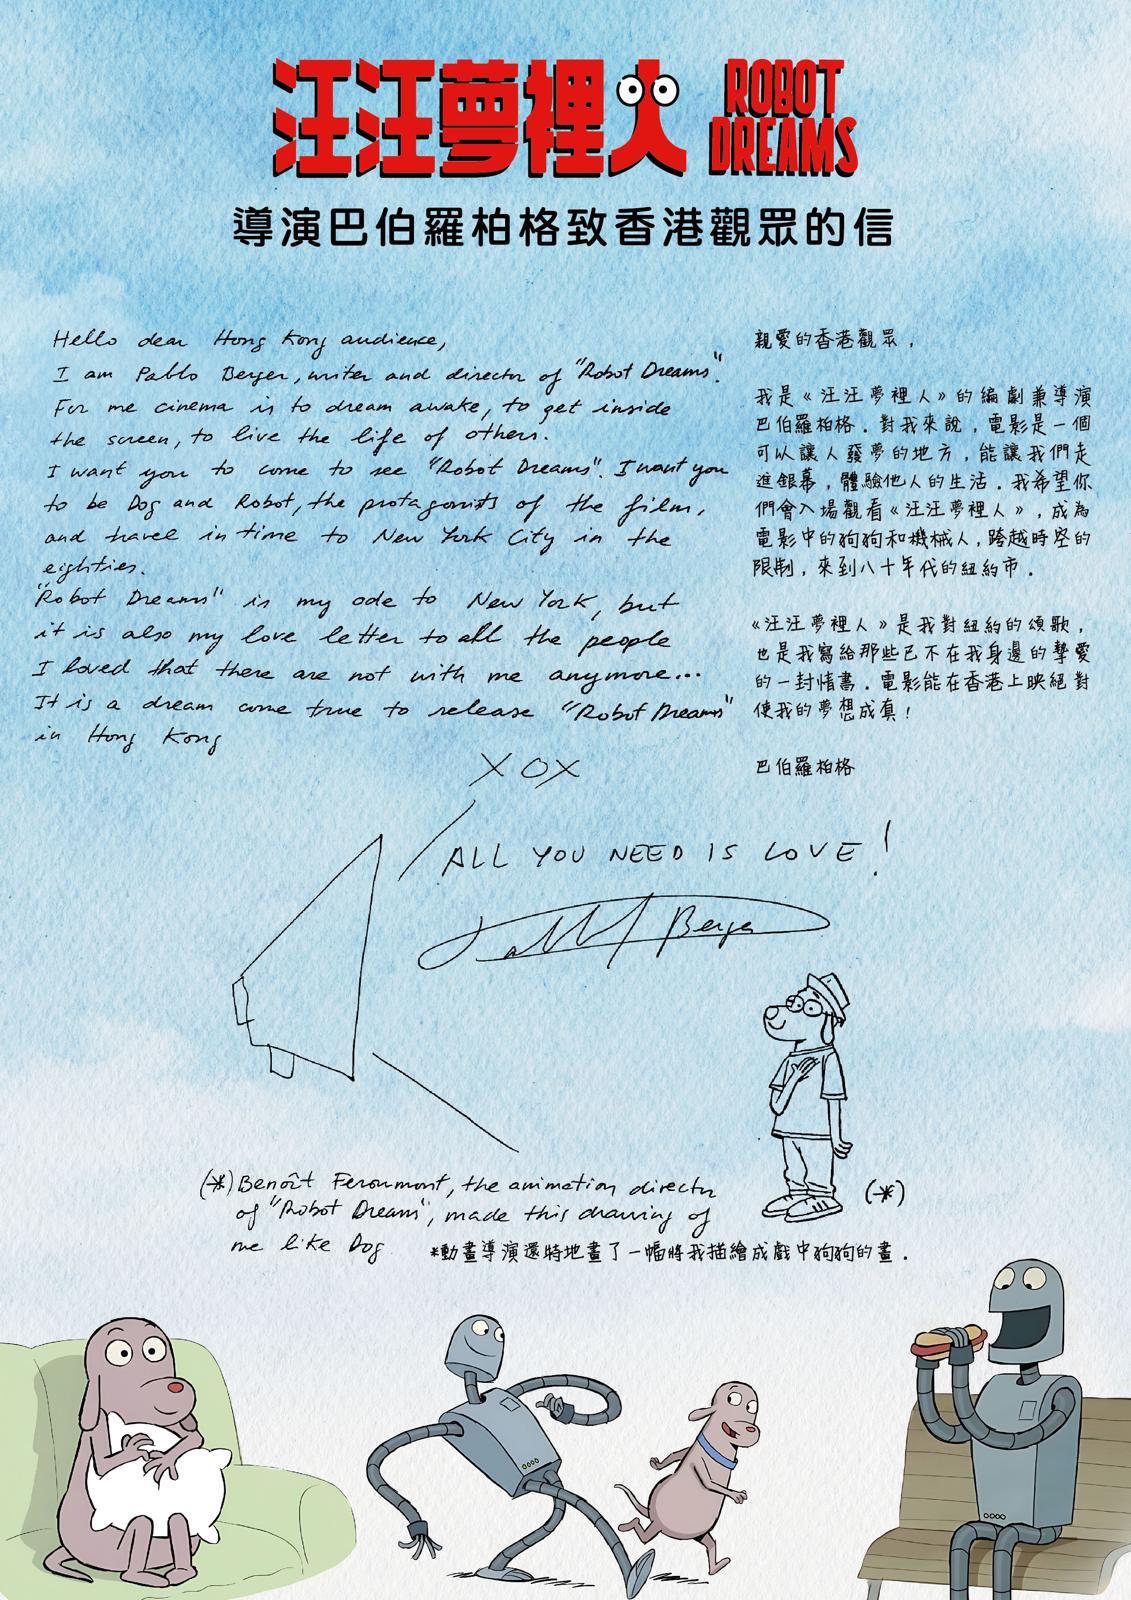 汪汪夢裡人 ROBOT DREAMS
導演巴伯羅柏格致香港觀眾的信
Hello dear Hong Kong audience,
I am Pablo Berger, writer and director of "Robot Dreams".
For me cinema is to dream awake, to get inside
the screen, to live the life of others.
I want you to come to see "Robot Dreams". I want you
to be Dog and Robot, the protagonists of the film,
and travel in time to New York City in the
eighties.
"Robot Dreams" is my ode to New York, but
it is also my love letter to all the people
I loved that there are not with me anymore...
It is a dream come true to release "Robot Dreams"
in Hong Kong
XOX
親愛的香港觀眾，
我是《汪汪夢裡人》的編劇兼導演
巴伯羅柏格．對我來說，電影是一個
可以讓人發夢的地方，能讓我們走
進銀幕，體驗他人的生活．我希望你
們會入場觀看《汪汪夢裡人》，成為
電影中的狗狗和機械人，跨越時空的
限制，來到八十年代的紐約市．
《汪汪夢裡人》是我對紐約的頌歌，
也是我寫給那些已不在我身邊的摯愛
的一封情書．電影能在香港上映絕對
使我的夢想成真！
巴伯羅柏格
ALL YOU NEED IS LOVE!
Pablo Berger
(*)
(*) Benoît Feroumont, the animation director
of "Robot Dreams", made this drawing of
me like Dog
*動畫導演還特地畫了一幅將我描繪成戲中狗狗的畫．